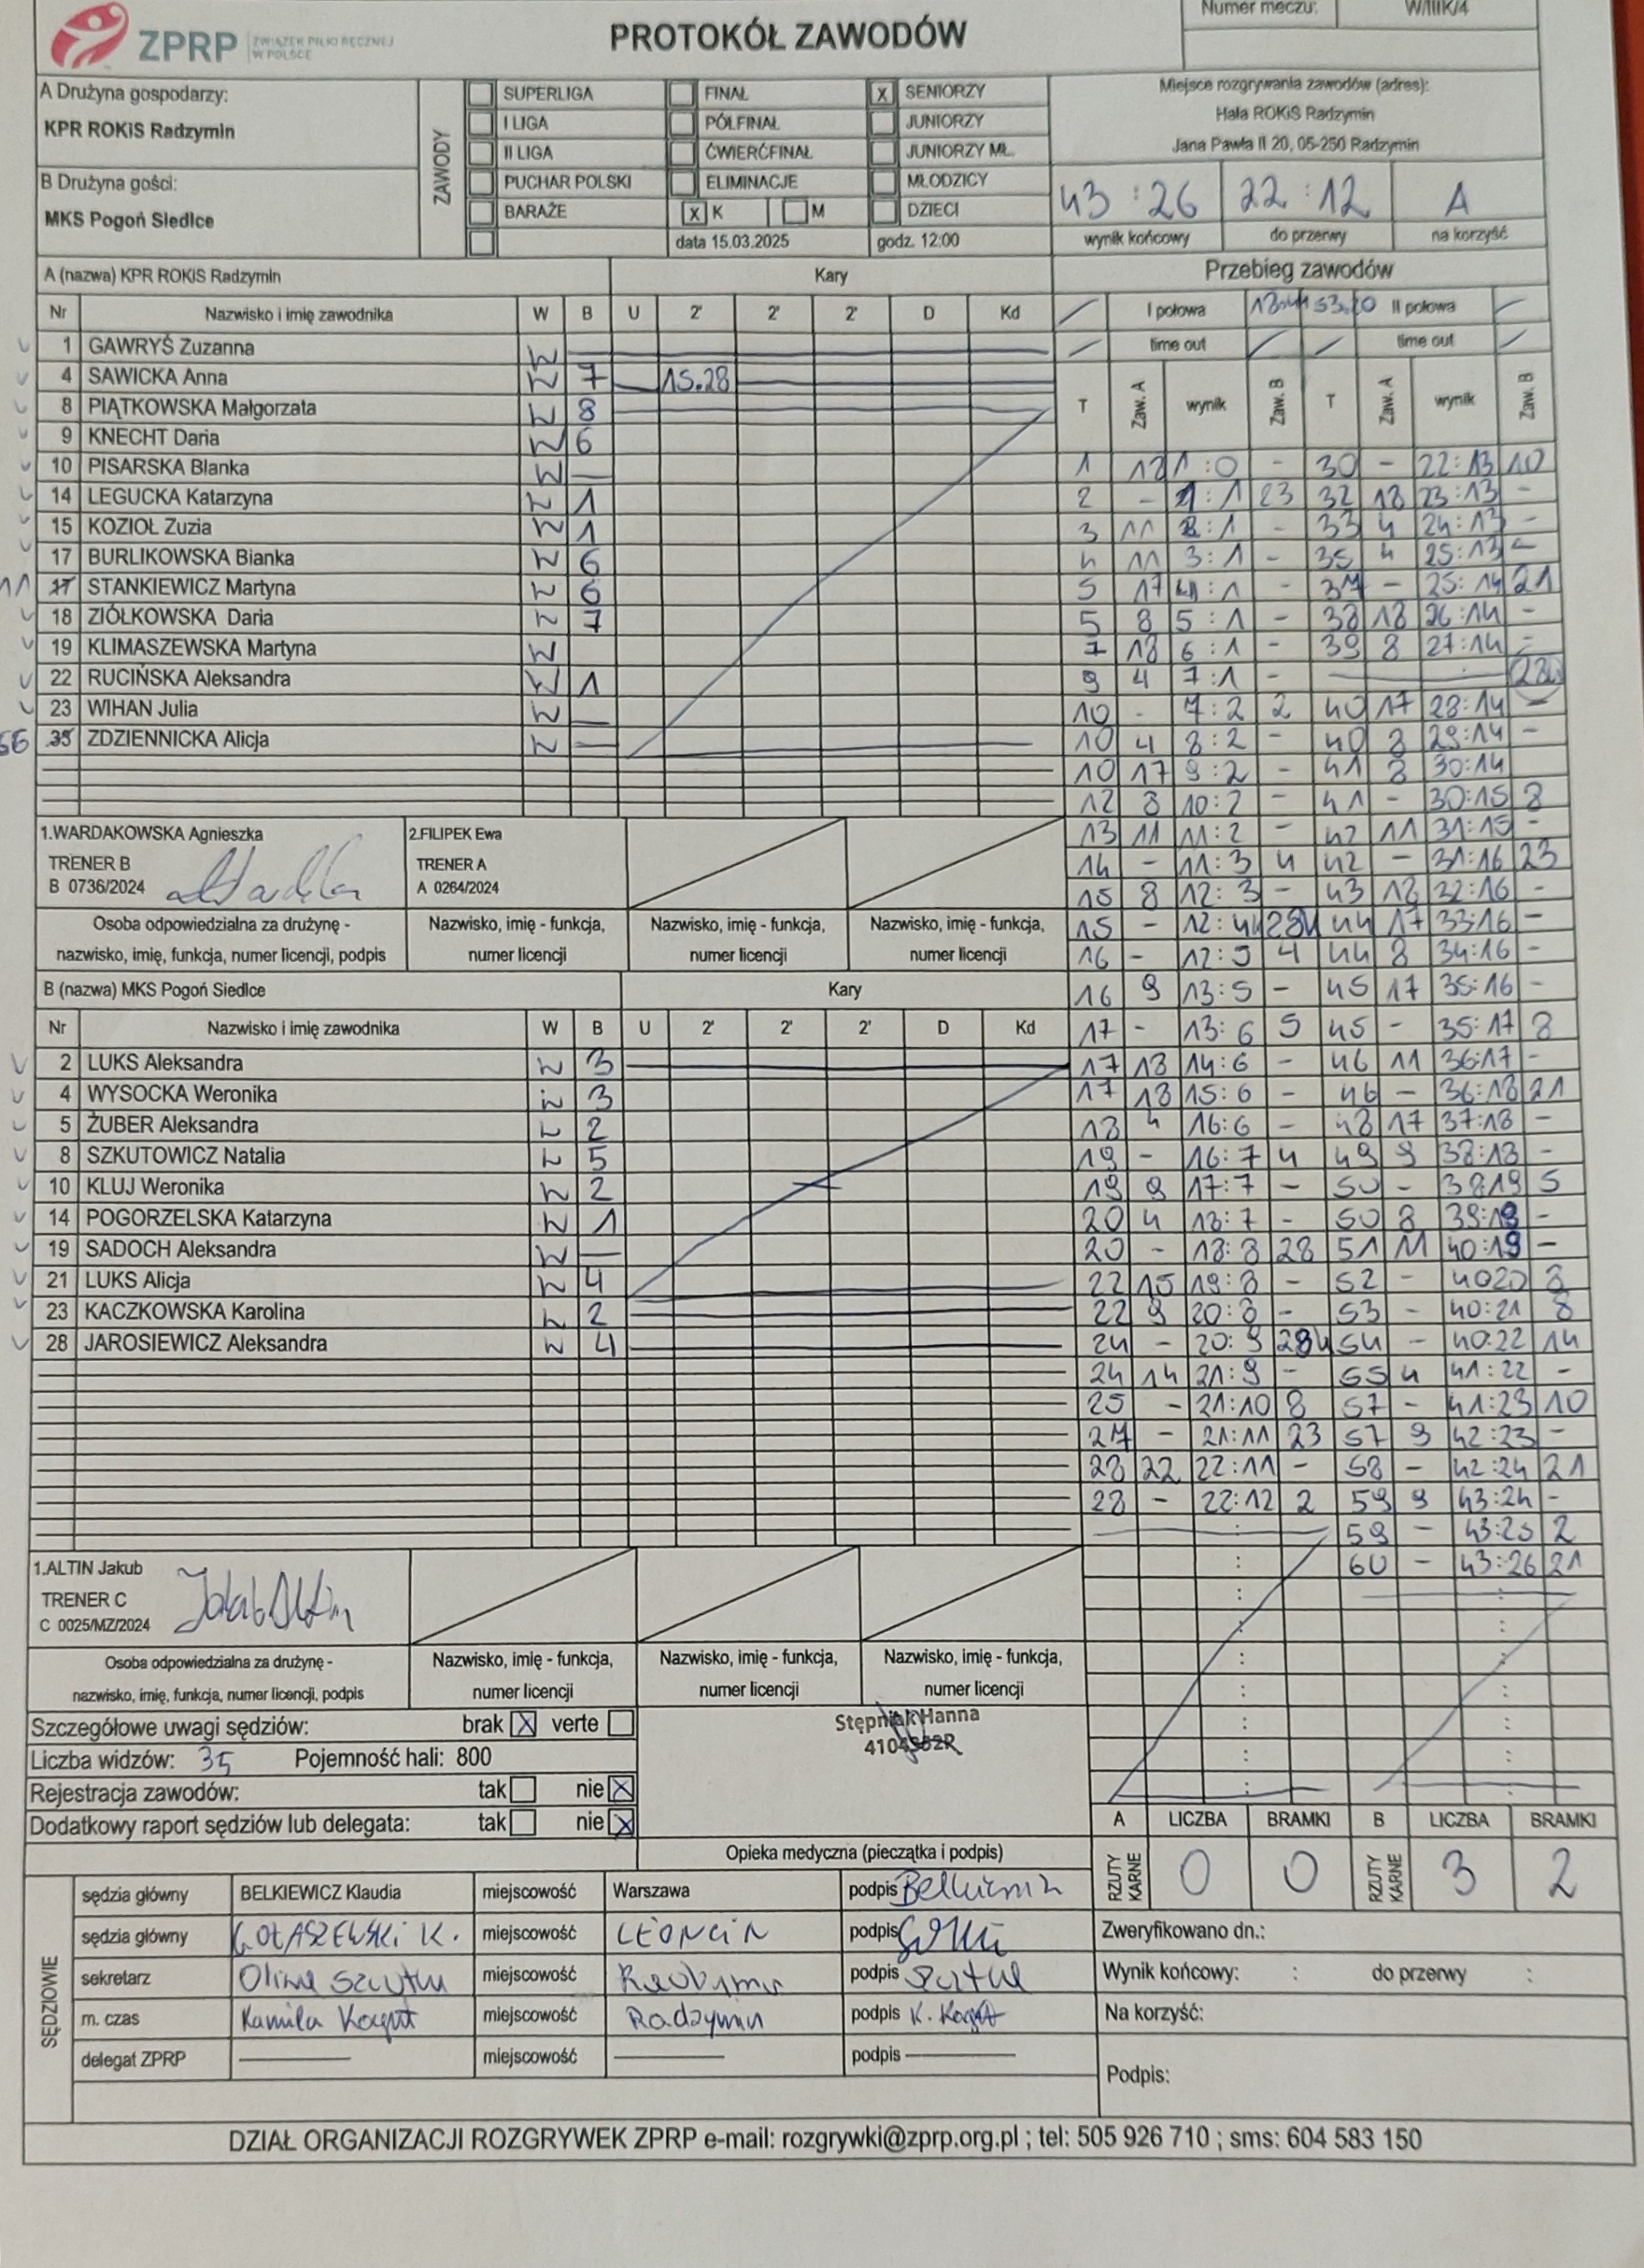 ZPRP ZWIĄZEK PIŁKI RĘCZNEJ W POLSCE
PROTOKÓŁ ZAWODÓW
Numer meczu: W/IIIK/4
A Drużyna gospodarzy:
KPR ROKiS Radzymin
B Drużyna gości:
MKS Pogoń Siedlce
ZAWODY
SUPERLIGA FINAŁ X SENIORZY
I LIGA PÓŁFINAŁ JUNIORZY
II LIGA ĆWIERĆFINAŁ JUNIORZY MŁ.
PUCHAR POLSKI ELIMINACJE MŁODZICY
BARAŻE X K M DZIECI
data 15.03.2025 godz. 12:00
Miejsce rozgrywania zawodów (adres):
Hala ROKiS Radzymin
Jana Pawła II 20, 05-250 Radzymin
43 : 26 22 : 12 A
wynik końcowy do przerwy na korzyść
A (nazwa) KPR ROKiS Radzymin Kary
Nr Nazwisko i imię zawodnika W B U 2' 2' 2' D Kd
1 GAWRYŚ Zuzanna W
4 SAWICKA Anna W 7 15.28
8 PIĄTKOWSKA Małgorzata W 8
9 KNECHT Daria W 6
10 PISARSKA Blanka W —
14 LEGUCKA Katarzyna W 1
15 KOZIOŁ Zuzia W 1
17 BURLIKOWSKA Bianka W 6
11 17 STANKIEWICZ Martyna W 6
18 ZIÓŁKOWSKA Daria W 7
19 KLIMASZEWSKA Martyna W
22 RUCIŃSKA Aleksandra W 1
23 WIHAN Julia W —
66 35 ZDZIENNICKA Alicja W —
1.WARDAKOWSKA Agnieszka
TRENER B
B 0736/2024
2.FILIPEK Ewa
TRENER A
A 0264/2024
Osoba odpowiedzialna za drużynę - nazwisko, imię, funkcja, numer licencji, podpis
Nazwisko, imię - funkcja, numer licencji
Nazwisko, imię - funkcja, numer licencji
Nazwisko, imię - funkcja, numer licencji
B (nazwa) MKS Pogoń Siedlce Kary
Nr Nazwisko i imię zawodnika W B U 2' 2' 2' D Kd
2 LUKS Aleksandra W 3
4 WYSOCKA Weronika W 3
5 ŻUBER Aleksandra W 2
8 SZKUTOWICZ Natalia W 5
10 KLUJ Weronika W 2
14 POGORZELSKA Katarzyna W 1
19 SADOCH Aleksandra W —
21 LUKS Alicja W 4
23 KACZKOWSKA Karolina W 2
28 JAROSIEWICZ Aleksandra W 4
1.ALTIN Jakub
TRENER C
C 0025/MZ/2024
Osoba odpowiedzialna za drużynę - nazwisko, imię, funkcja, numer licencji, podpis
Nazwisko, imię - funkcja, numer licencji
Nazwisko, imię - funkcja, numer licencji
Nazwisko, imię - funkcja, numer licencji
Przebieg zawodów
I połowa 53.20 II połowa
time out time out
T Zaw. A wynik Zaw. B T Zaw. A wynik Zaw. B
1 12 1:0 - 30 - 22:13 10
2 - 1:1 23 32 18 23:13 -
3 11 2:1 - 33 4 24:13 -
4 11 3:1 - 35 4 25:13 -
5 17 4:1 - 37 - 25:14 21
5 8 5:1 - 38 18 26:14 -
7 18 6:1 - 39 8 27:14 -
9 4 7:1 -
10 - 7:2 2 40 17 28:14 -
10 4 8:2 - 40 8 29:14 -
10 17 9:2 - 41 8 30:14
12 8 10:2 - 41 - 30:15 8
13 11 11:2 - 42 11 31:15 -
14 - 11:3 4 42 - 31:16 23
15 8 12:3 - 43 18 32:16 -
15 - 12:4 28k 44 17 33:16 -
16 - 12:5 4 44 8 34:16 -
16 9 13:5 - 45 17 35:16 -
17 - 13:6 5 45 - 35:17 8
17 18 14:6 - 46 11 36:17 -
17 18 15:6 - 46 - 36:18 21
18 4 16:6 - 48 17 37:18 -
19 - 16:7 4 49 9 38:18 -
19 9 17:7 - 50 - 38:19 5
20 4 18:7 - 50 8 39:19 -
20 - 18:8 28 51 11 40:19 -
22 15 19:8 - 52 - 40:20 8
22 9 20:8 - 53 - 40:21 8
24 - 20:9 28k 54 - 40:22 14
24 14 21:9 - 55 4 41:22 -
25 - 21:10 8 57 - 41:23 10
27 - 21:11 23 57 9 42:23 -
28 22 22:11 - 58 - 42:24 21
28 - 22:12 2 59 9 43:24 -
59 - 43:25 2
60 - 43:26 21
Szczegółowe uwagi sędziów: brak X verte
Liczba widzów: 35 Pojemność hali: 800
Rejestracja zawodów: tak nie X
Dodatkowy raport sędziów lub delegata: tak nie X
Stępniak Hanna
Opieka medyczna (pieczątka i podpis)
A LICZBA BRAMKI B LICZBA BRAMKI
RZUTY KARNE 0 0 RZUTY KARNE 3 2
SĘDZIOWIE
sędzia główny BELKIEWICZ Klaudia miejscowość Warszawa podpis Belkiewicz
sędzia główny GOŁASZEWSKI K. miejscowość LEONCIN podpis
sekretarz miejscowość podpis
m. czas Kamila Kogut miejscowość Radzymin podpis K. Kogut
delegat ZPRP miejscowość podpis
Zweryfikowano dn.:
Wynik końcowy: : do przerwy :
Na korzyść:
Podpis:
DZIAŁ ORGANIZACJI ROZGRYWEK ZPRP e-mail: rozgrywki@zprp.org.pl ; tel: 505 926 710 ; sms: 604 583 150